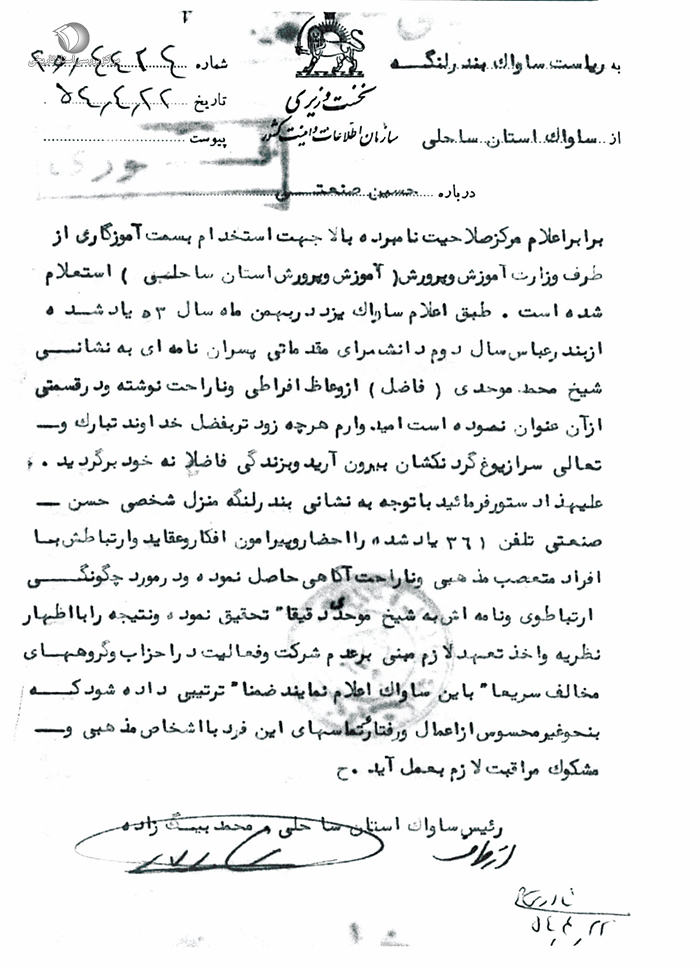 به ریاست ساواک بندرلنگه
شماره
نخست وزیری
تاریخ ۵۴٫۴٫۲۲
سازمان اطلاعات و امنیت کشور
از ساواک استان ساحلی
پیوست
فوری
درباره حسین صنعتی
برابر اعلام مرکز صلاحیت نامبرده بالا جهت استخدام بسمت آموزگاری از
طرف وزارت آموزش وپرورش( آموزش وپرورش استان ساحلی ) استعلام
شده است . طبق اعلام ساواک یزد در بهمن ماه سال ۵۳ یاد شده
از بندرعباس سال دوم دانشسرای مقدماتی پسران نامه ای به نشانی
شیخ محمد موحدی ( فاضل ) از وعاظ افراطی وناراحت نوشته ودرقسمتی
ازآن عنوان نموده است امیدوارم هرچه زود تربفضل خداوند تبارک و
تعالی سرازیوغ گردنکشان بیرون آرید وبزندگی فاضلا نه خود برگردید .
علیهذا دستورفرمائید باتوجه به نشانی بندرلنگه منزل شخصی حسن
صنعتی تلفن ۳۶۱ یادشده رااحضاروپیرامون افکاروعقاید وارتباطش با
افراد متعصب مذهبی وناراحت آگاهی حاصل نموده ودرمورد چگونگی
ارتباط وی ونامه اش به شیخ موحدی دقیقا" تحقیق نموده ونتیجه رابااظهار
نظریه واخذ تعهد لازم مبنی برعدم شرکت وفعالیت دراحزاب وگروههای
مخالف سریعا" باین ساواک اعلام نمایند ضمنا" ترتیبی داده شود که
بنحوغیرمحسوس ازاعمال ورفتار وتماسهای این فرد بااشخاص مذهبی و
مشکوک مراقبت لازم بعمل آید .ح
رئیس ساواک استان ساحلی . محمد بیگ زاده
از طرف